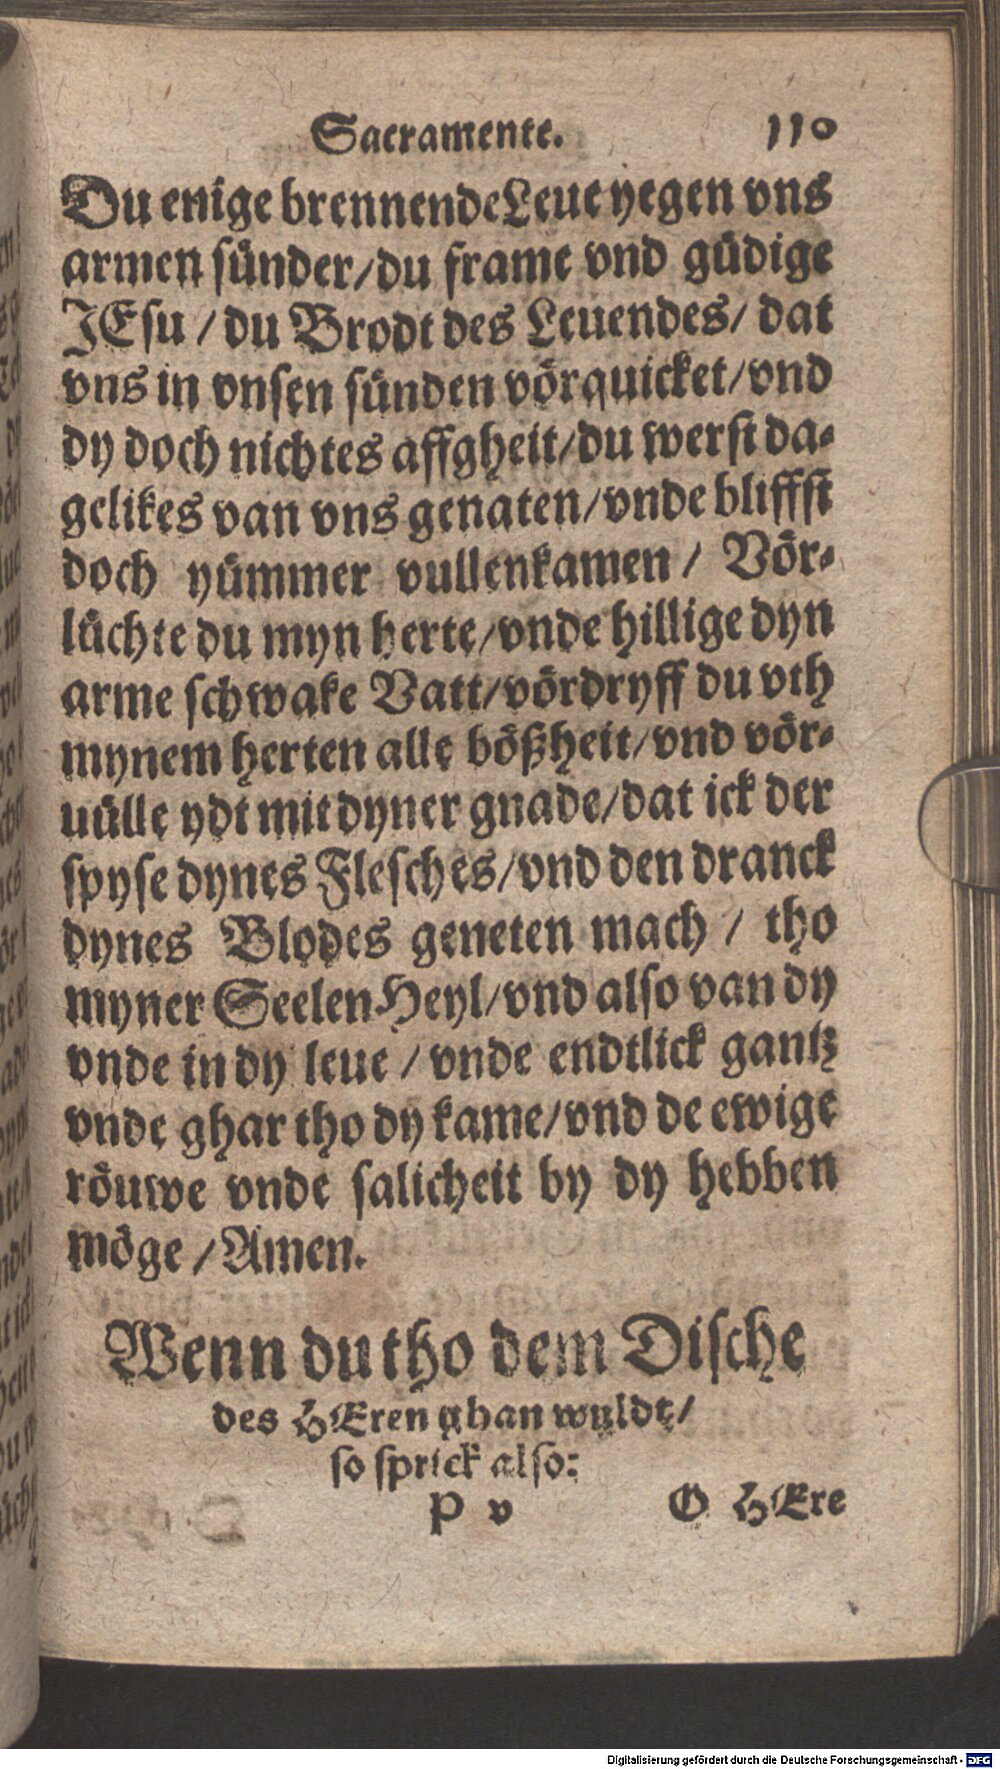 Sacramente. 110
Du enige brennende Leue yegen vns
armen sünder/du frame vnd güdige
JEsu / du Brodt des Leuendes/ dat
vns in vnsen sünden vörquicket/vnd
dy doch nichtes affgheit/du werst da-
gelikes van vns genaten/vnde bliffst
doch yümmer vullenkamen / Vör-
lüchte du myn herte/vnde hillige dyn
arme schwake Vatt/vördryff du vth
mynem herten alle bößheit/vnd vör-
uülle ydt mit dyner gnade/dat ick der
spyse dynes Flesches/vnd den dranck
dynes Blodes geneten mach / tho
myner Seelen Heyl/vnd also van dy
vnde in dy leue / vnde endtlick gantz
vnde ghar tho dy kame/vnd de ewige
röuwe vnde salicheit by dy hebben
möge / Amen.
Wenn du tho dem Dische
des HEren ghan wuldt/
so sprick also:
P v O HEre
Digitalisierung gefördert durch die Deutsche Forschungsgemeinschaft - DFG